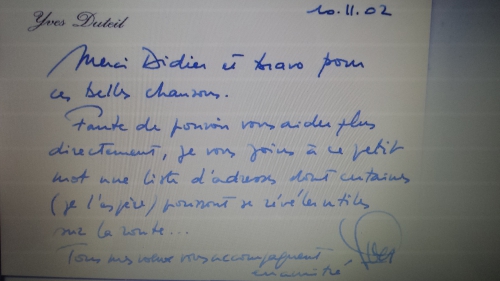 Yves Duteil
10.11.02
Merci Didier et bravo pour
ces belles chansons.
Faute de pouvoir vous aider plus
directement, je vous joins à ce petit
mot une liste d'adresses dont certaines
(je l'espère) pourront se révéler utiles
sur la route...
Tous mes vœux vous accompagnent
en amitié
Yves